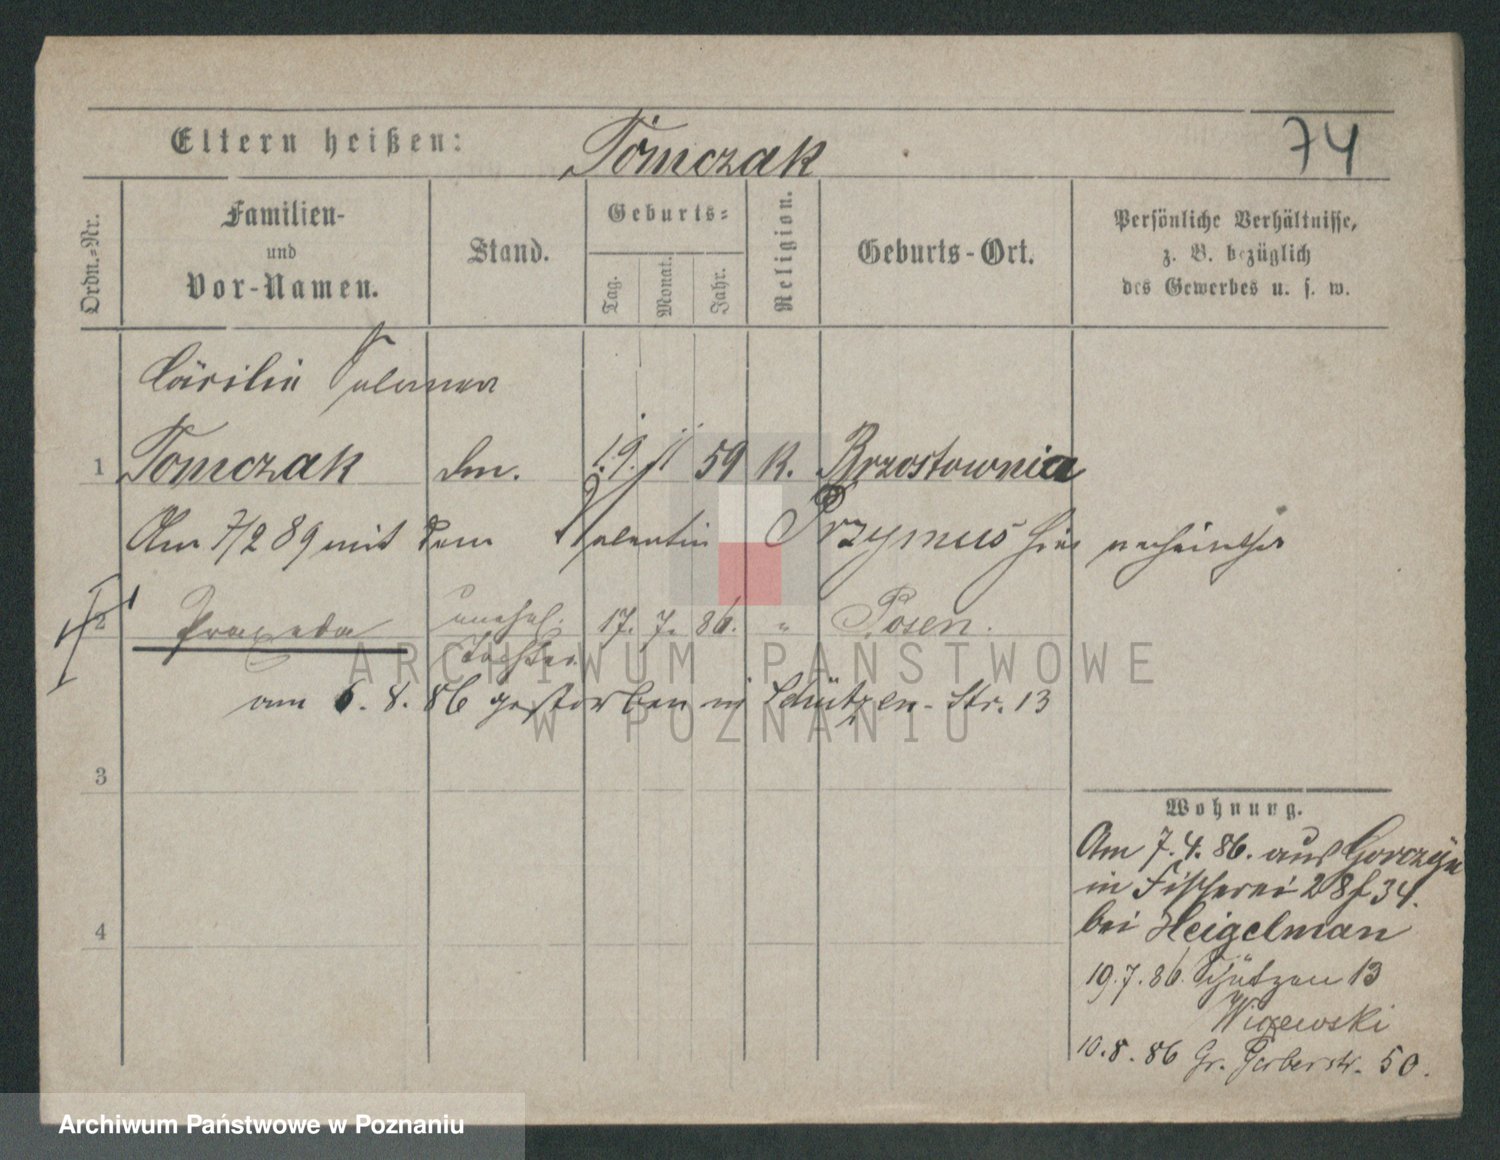 74
Eltern heißen: Tomczak
Ordn.-Nr.
Familien-
und
Vor-Namen.
Stand.
Geburts-
Tag.
Monat.
Jahr.
Religion.
Geburts-Ort.
Persönliche Verhältnisse,
z. B. bezüglich
des Gewerbes u. s. w.
Cäcilia Salomea
1 Tomczak 19. 11 59 K. Brzostownia
Am 7/2 89 mit dem Valentin Przymus hier verheirathet
2 Praxeda unehel. 17. 7. 86. " Posen.
Tochter
am 6. 8. 86 gestorben in Schützen-Str. 13
3
4
Wohnung.
Am 7. 4. 86. aus Gorczyn
in Fischerei 28 34.
bei Heigelman
19. 7. 86. Schützen 13
10. 8. 86 Gr. Gerberstr. 50.
ARCHIWUM PAŃSTWOWE
W POZNANIU
Archiwum Państwowe w Poznaniu